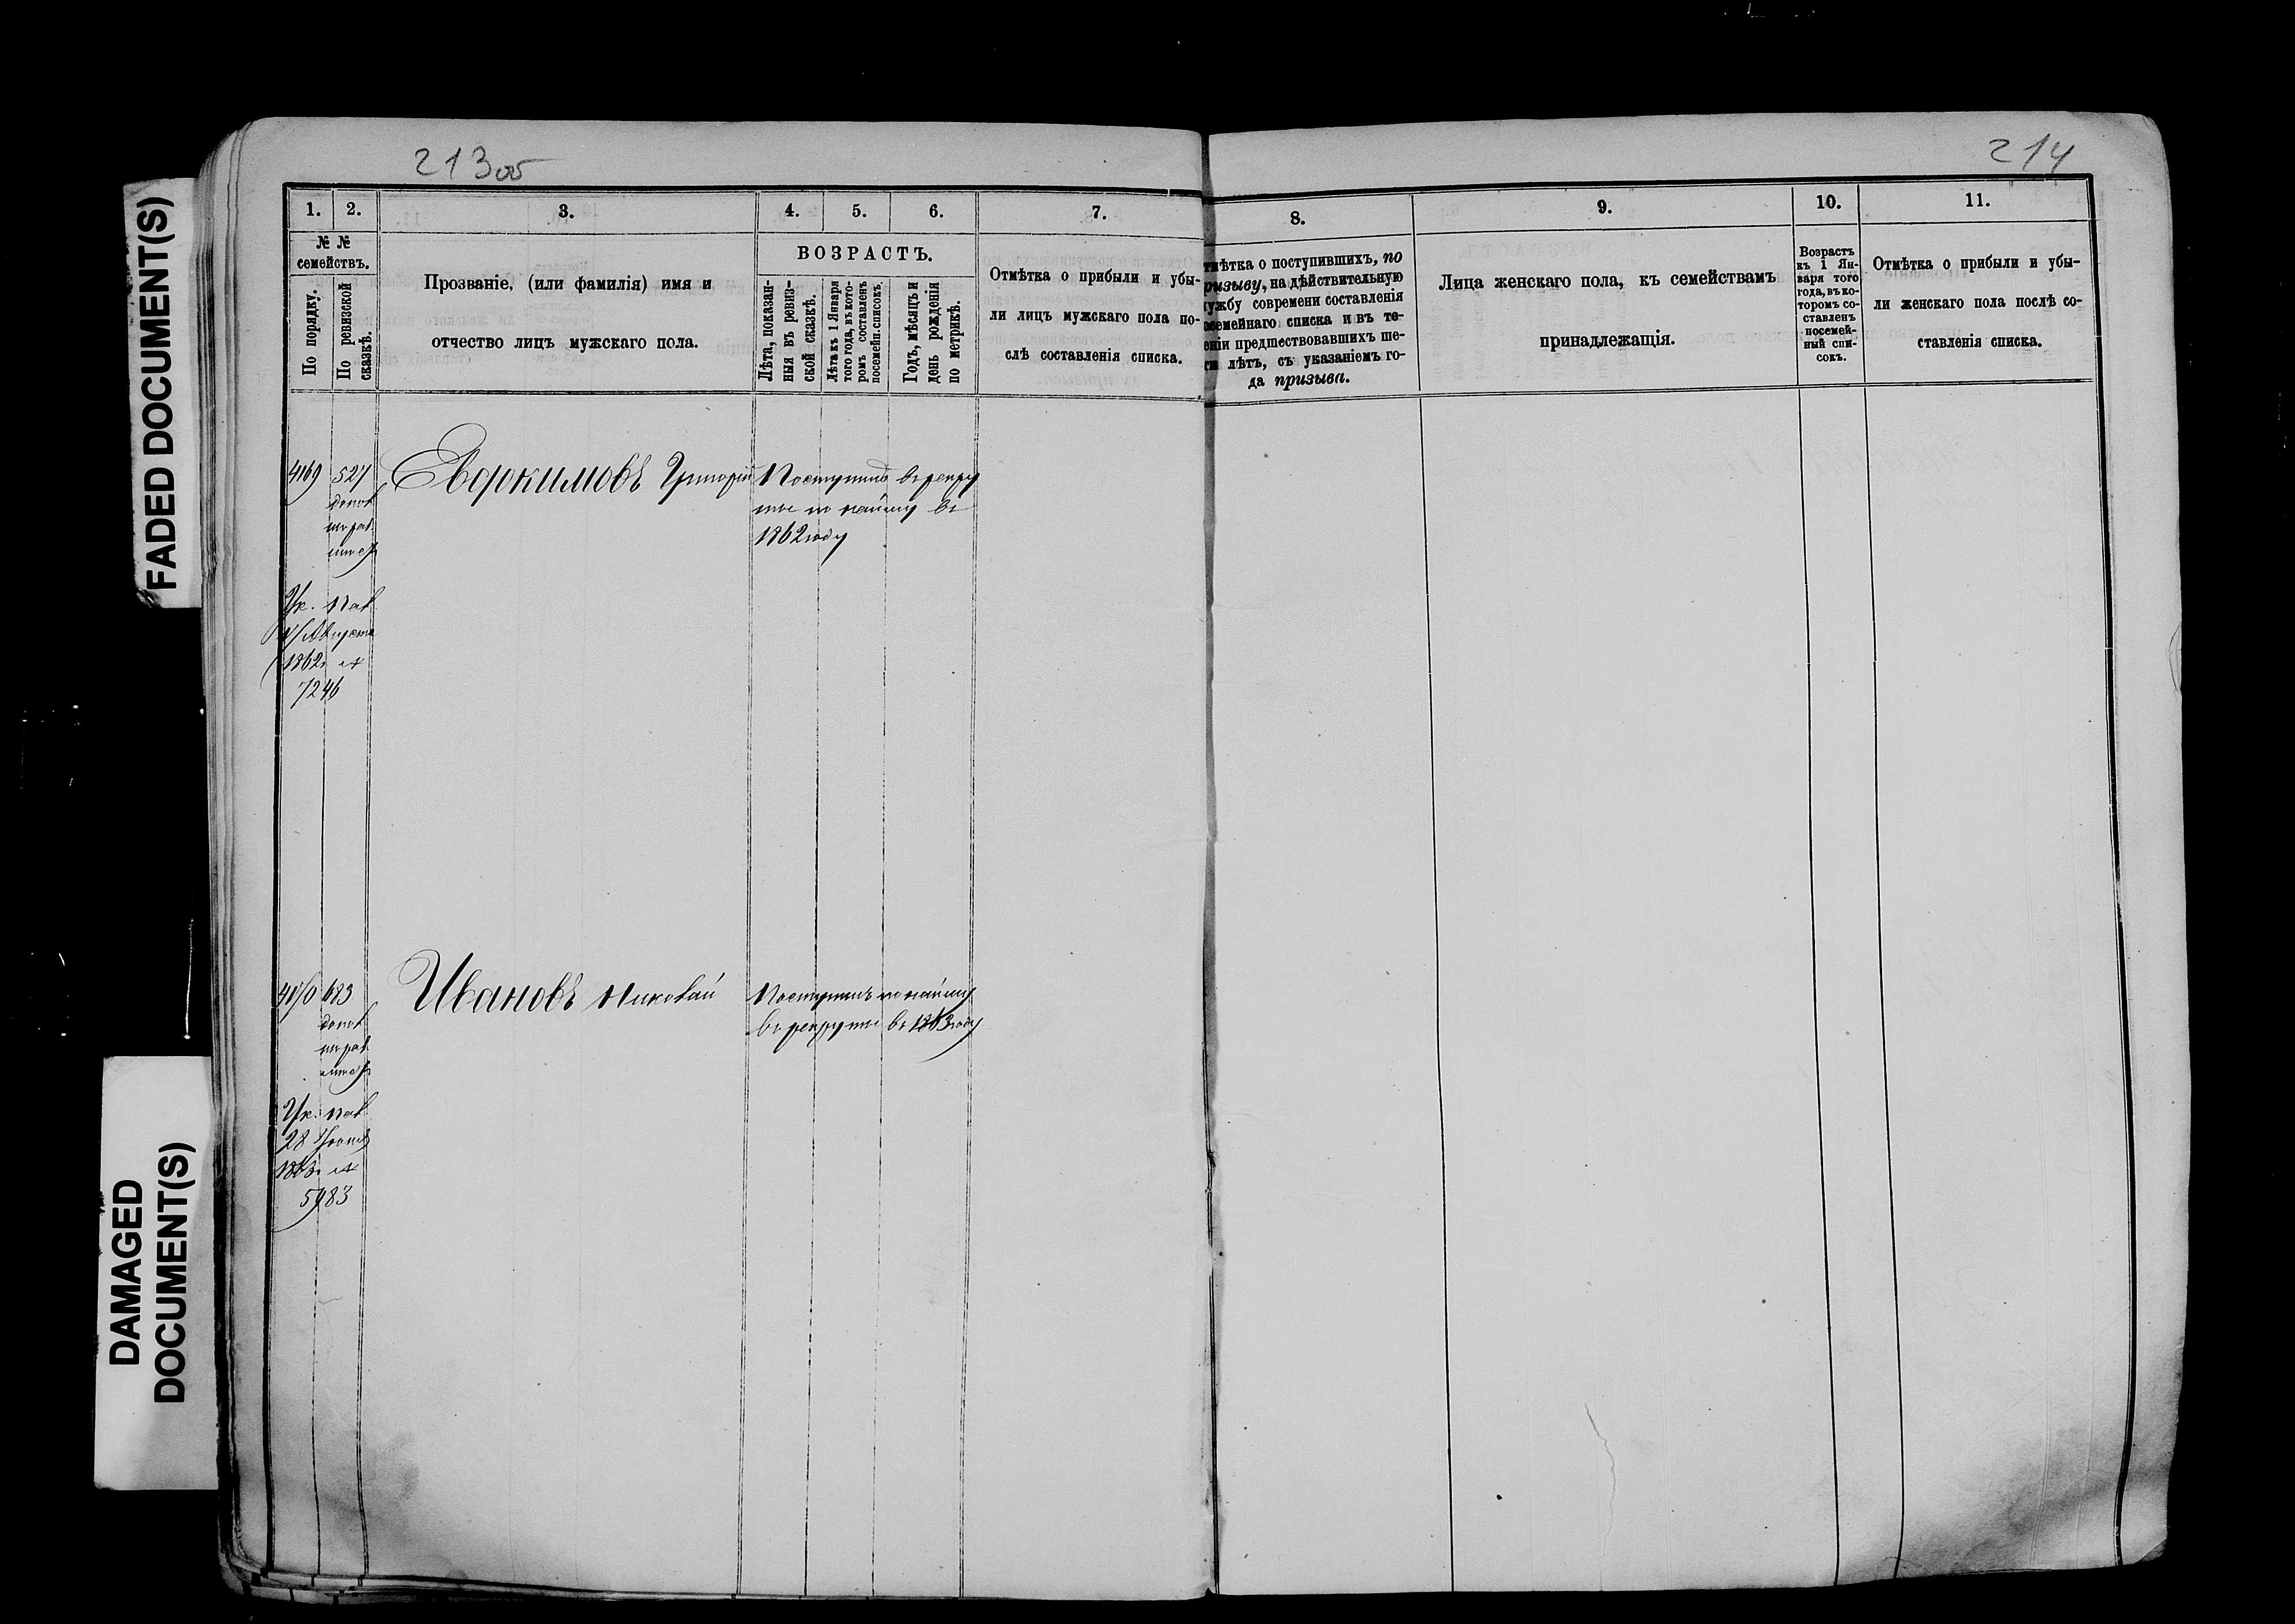 FADED DOCUMENT(S)
DAMAGED
DOCUMENT(S)
213об
214
1. 2. 3. 4. 5. 6. 7. 8. 9. 10. 11.
№ №
семействъ.
По порядку.
По ревизской
сказкѣ.
Прозваніе, (или фамилія) имя и
отчество лицъ мужскаго пола.
ВОЗРАСТЪ.
Лѣта, показан-
ныя въ ревиз-
ской сказкѣ.
Лѣта къ 1 Января
того года, въ кото-
ромъ составленъ
посемейн. списокъ.
Годъ, мѣсяцъ и
день рожденія
по метрикѣ.
Отмѣтка о прибыли и убы-
ли лицъ мужскаго пола по-
слѣ составленія списка.
тмѣтка о поступившихъ, по
ризыву, на дѣйствительную
ужбу современи составленія
семейнаго списка и въ те-
еніи предшествовавшихъ ше-
ти лѣтъ, съ указаніемъ го-
да призыва.
Лица женскаго пола, къ семействамъ
принадлежащія.
Возрастъ
къ 1 Ян-
варя того
года, въ ко-
торомъ со-
ставленъ
посемей-
ный спи-
сокъ.
Отмѣтка о прибыли и убы-
ли женскаго пола послѣ со-
ставленія списка.
4169 527 Евдокимовъ Григорій Поступилъ въ рекру
ты по найму въ
1862 году
Ук. Пал.
Августа
1862г. №
7246
4170 683 Ивановъ Николай Поступилъ по найму
въ рекруты въ 1863 году
Ук. Пал.
28 Іюня
1863г. №
5983